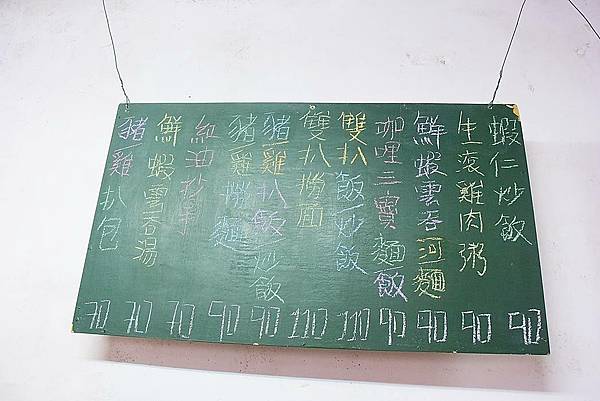 蝦仁炒飯 90
生滾雞肉粥 90
鮮蝦雲吞河/麵 90
咖哩三寶麵/飯 90
雙扒飯/炒飯 110
雙扒撈面 110
豬/雞扒飯/炒飯 90
豬/雞撈麵 90
紅油抄手 70
鮮蝦雲吞湯 70
豬/雞扒包 70